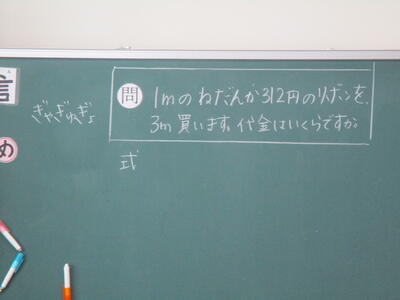 信
め
ぎゃぎゅぎょ
問 1mのねだんが312円のリボンを、
3m買います。代金はいくらですか。
式